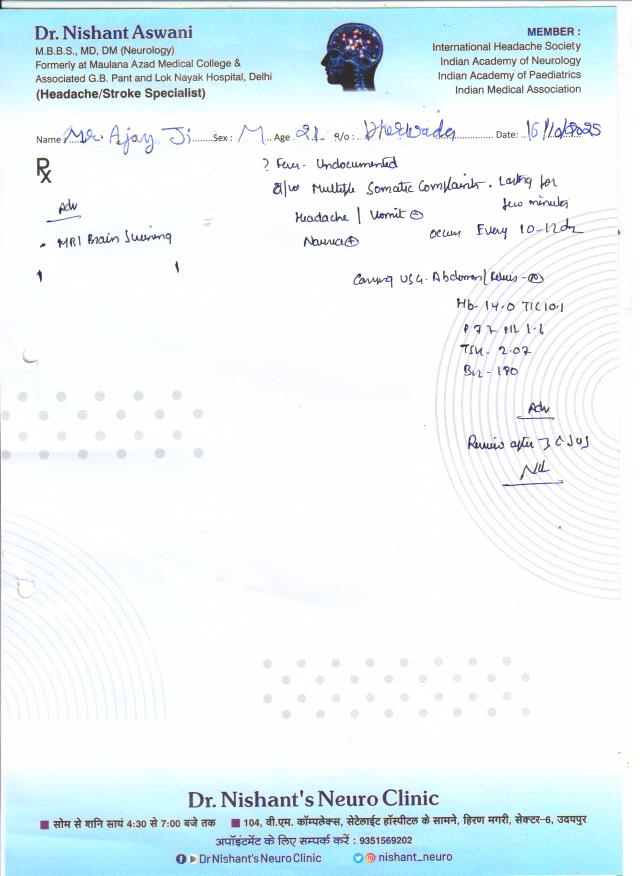 Dr. Nishant Aswani
M.B.B.S., MD, DM (Neurology)
Formerly at Maulana Azad Medical College &
Associated G.B. Pant and Lok Nayak Hospital, Delhi
(Headache/Stroke Specialist)
MEMBER :
International Headache Society
Indian Academy of Neurology
Indian Academy of Paediatrics
Indian Medical Association
Name Mr. Ajay Ji Sex : M Age 21 R/o : Date: 16/10/2025
Rx
? Fever - Undocumented
Multiple Somatic Complaints. Lasting for
few minutes
Headache | Vomit ⊖
Nausea ⊕
occurs Every 10-12 
Adv
MRI Brain
USG - Abdomen / Pelvis -
Hb - 14.0 TLC 10.1
P 77
TSH - 2.07
B12 - 190
Adv
Review after
Dr. Nishant's Neuro Clinic
■ सोम से शनि सायं 4:30 से 7:00 बजे तक ■ 104, वी.एम. कॉम्पलेक्स, सेटेलाईट हॉस्पीटल के सामने, हिरण मगरी, सेक्टर-6, उदयपुर
अपॉइंटमेंट के लिए सम्पर्क करें : 9351569202
Dr Nishant's Neuro Clinic nishant_neuro